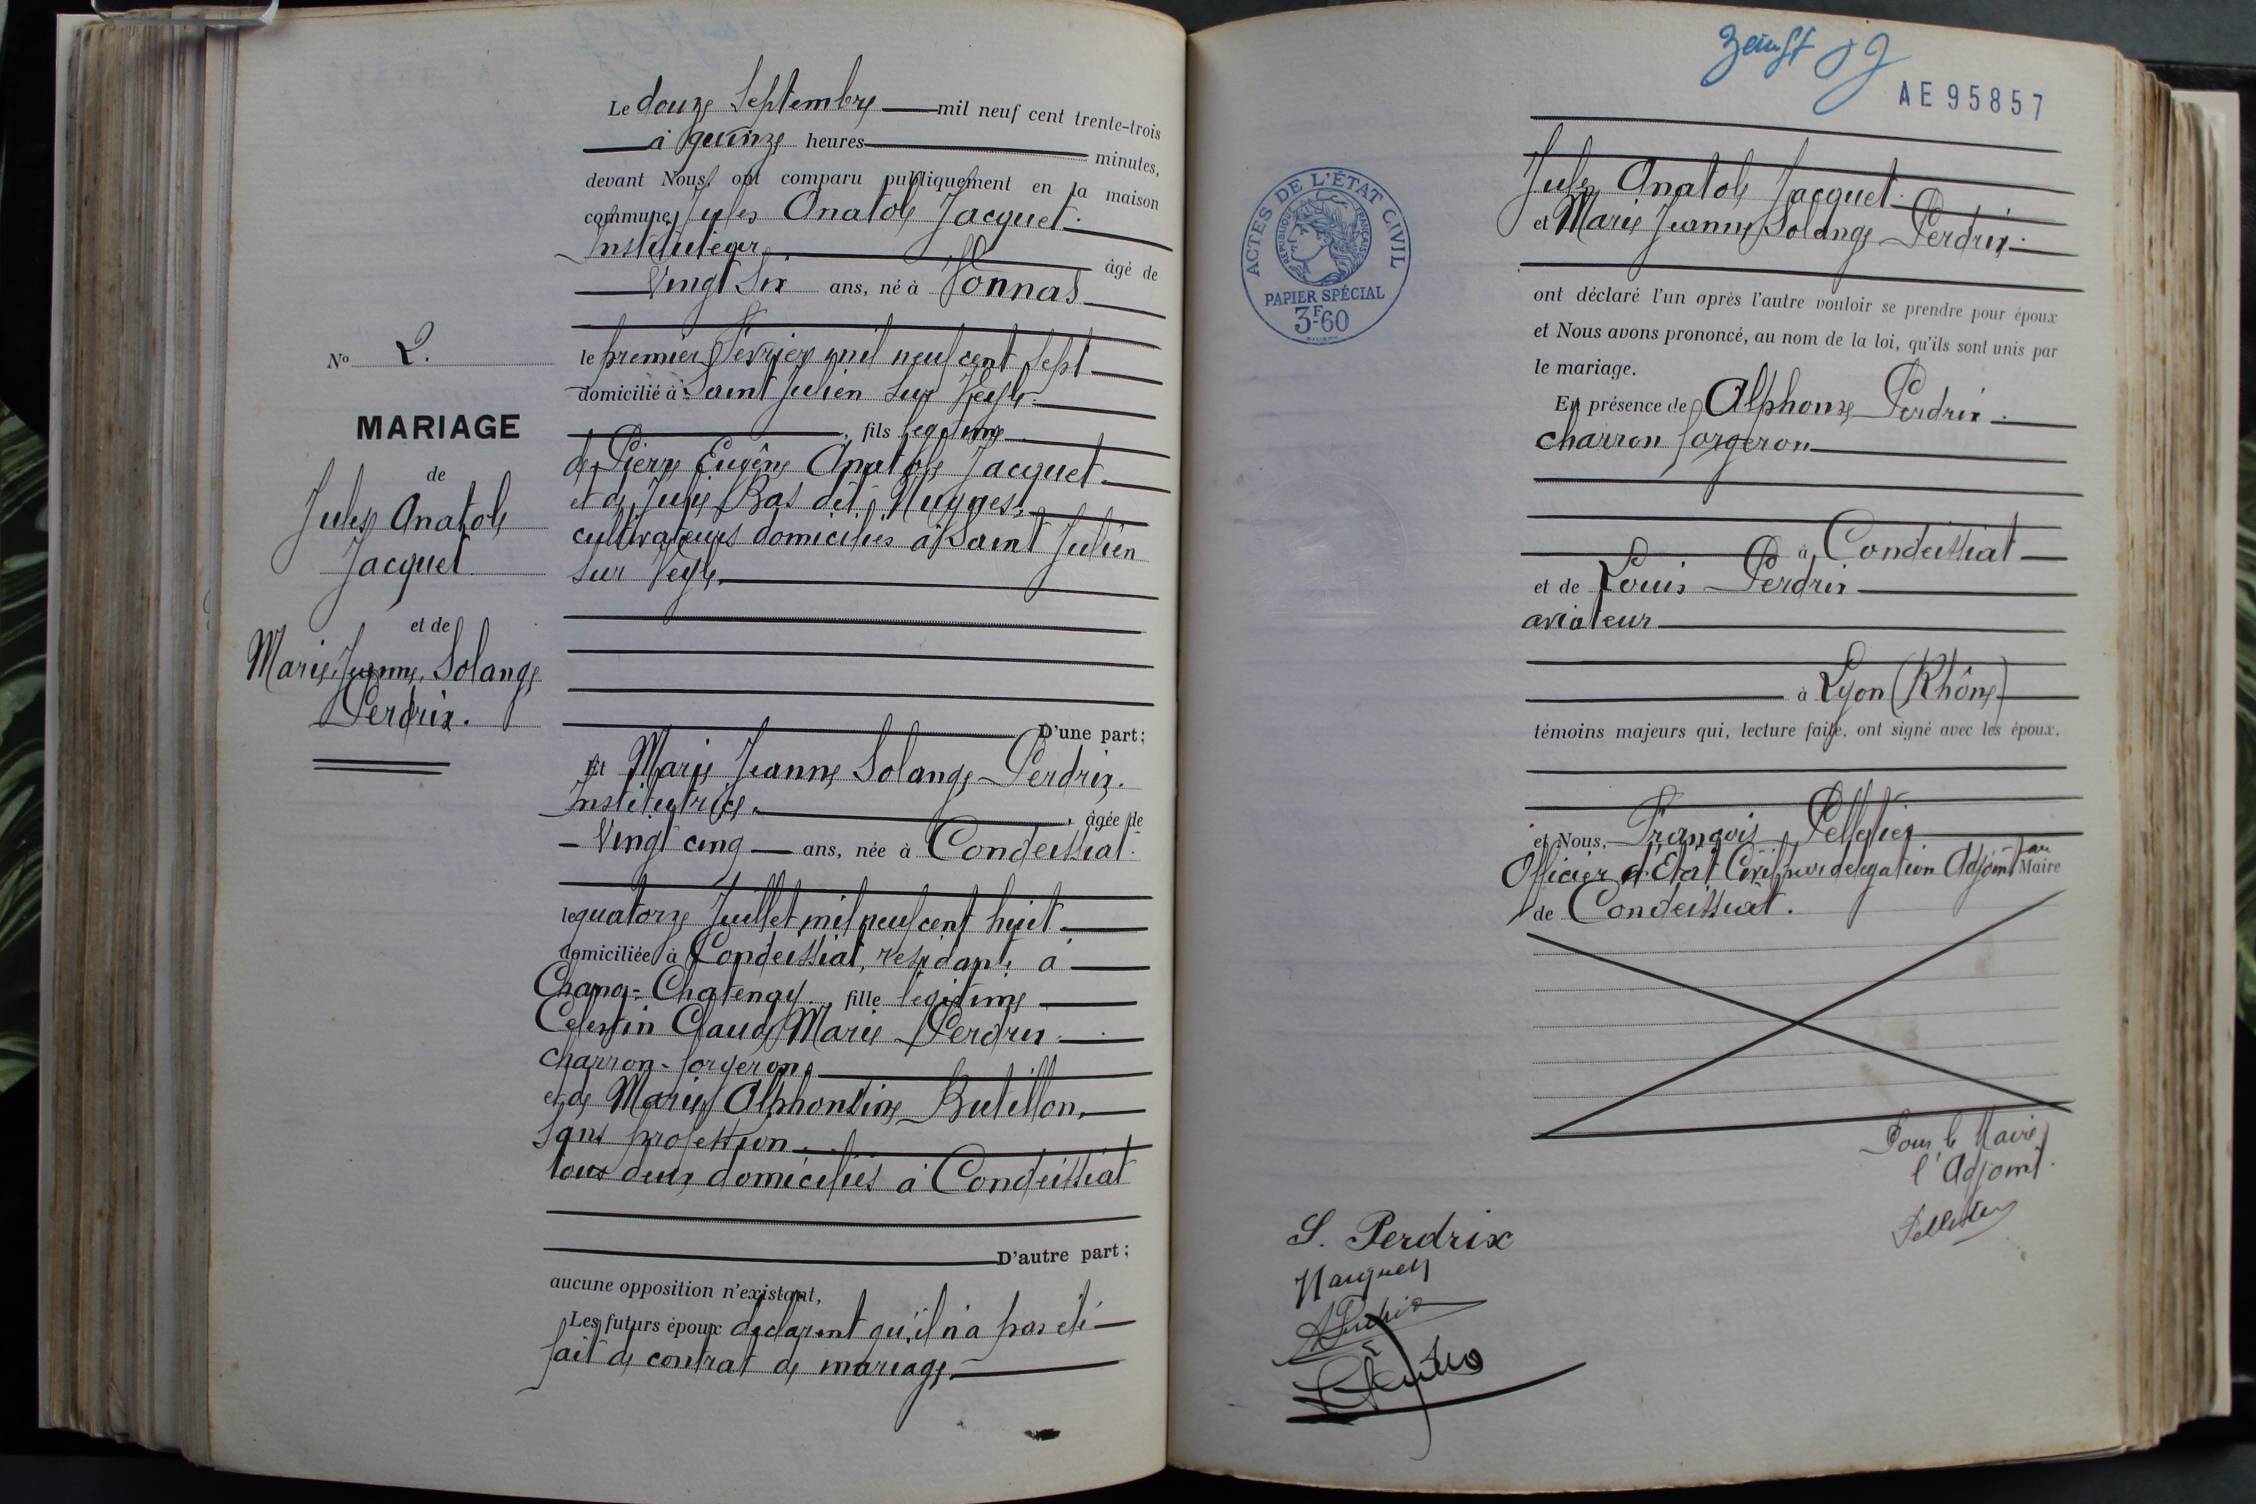 Le douze Septembre mil neuf cent trente-trois
à quinze heures minutes,
devant Nous, ont comparu publiquement en la maison
commune, Jules Anatole Jacquet.
Instituteur, âgé de
Vingt Six ans, né à Vonnas
le premier Février mil neuf cent sept
domicilié à Saint Julien sur Veyle.
, fils légitime
de Pierre Eugène Anatole Jacquet
et de Julie Bas dit Nugues,
cultivateurs domiciliés à Saint Julien
sur Veyle.
D'une part;
Et Marie Jeanne Solange Perdrix.
Institutrice. , âgée de
Vingt cinq ans, née à Condeissiat.
le quatorze Juillet mil neuf cent huit
domiciliée à Condeissiat, résidant à
Chanoz-Chatenay, fille légitime
Celestin Claude Marie Perdrix
charron-forgeron,
et de Marie Alphonsine Butillon,
sans profession.
tous deux domiciliés à Condeissiat
D'autre part;
aucune opposition n'existant,
Les futurs époux déclarent qu'il n'a pas été
fait de contrat de mariage.
No 2.
MARIAGE
de
Jules Anatole
Jacquet
et de
Marie Jeanne Solange
Perdrix.
AE 95857
ACTES DE L'ÉTAT CIVIL
RÉPUBLIQUE FRANÇAISE
PAPIER SPÉCIAL
3F-60
Jules Anatole Jacquet.
et Marie Jeanne Solange Perdrix.
ont déclaré l'un après l'autre vouloir se prendre pour époux
et Nous avons prononcé, au nom de la loi, qu'ils sont unis par
le mariage.
En présence de Alphonse Perdrix.
charron forgeron
à Condeissiat
et de Louis Perdrix
aviateur
à Lyon (Rhône)
témoins majeurs qui, lecture faite, ont signé avec les époux.
et Nous, François Pelletier
Officier d'Etat Civil par delegation Adjoint au Maire
de Condeissiat.
Pour le Maire,
l'Adjoint.
Pelletier
S. Perdrix